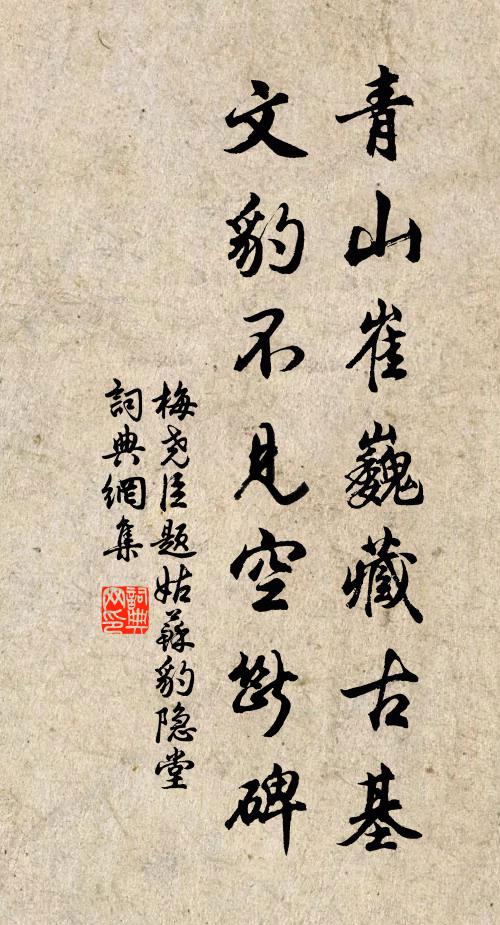 青山崔巍藏古基
文豹不見空斷碑
梅堯臣題姑蘇豹隐堂
詞典網集
詞典
网印